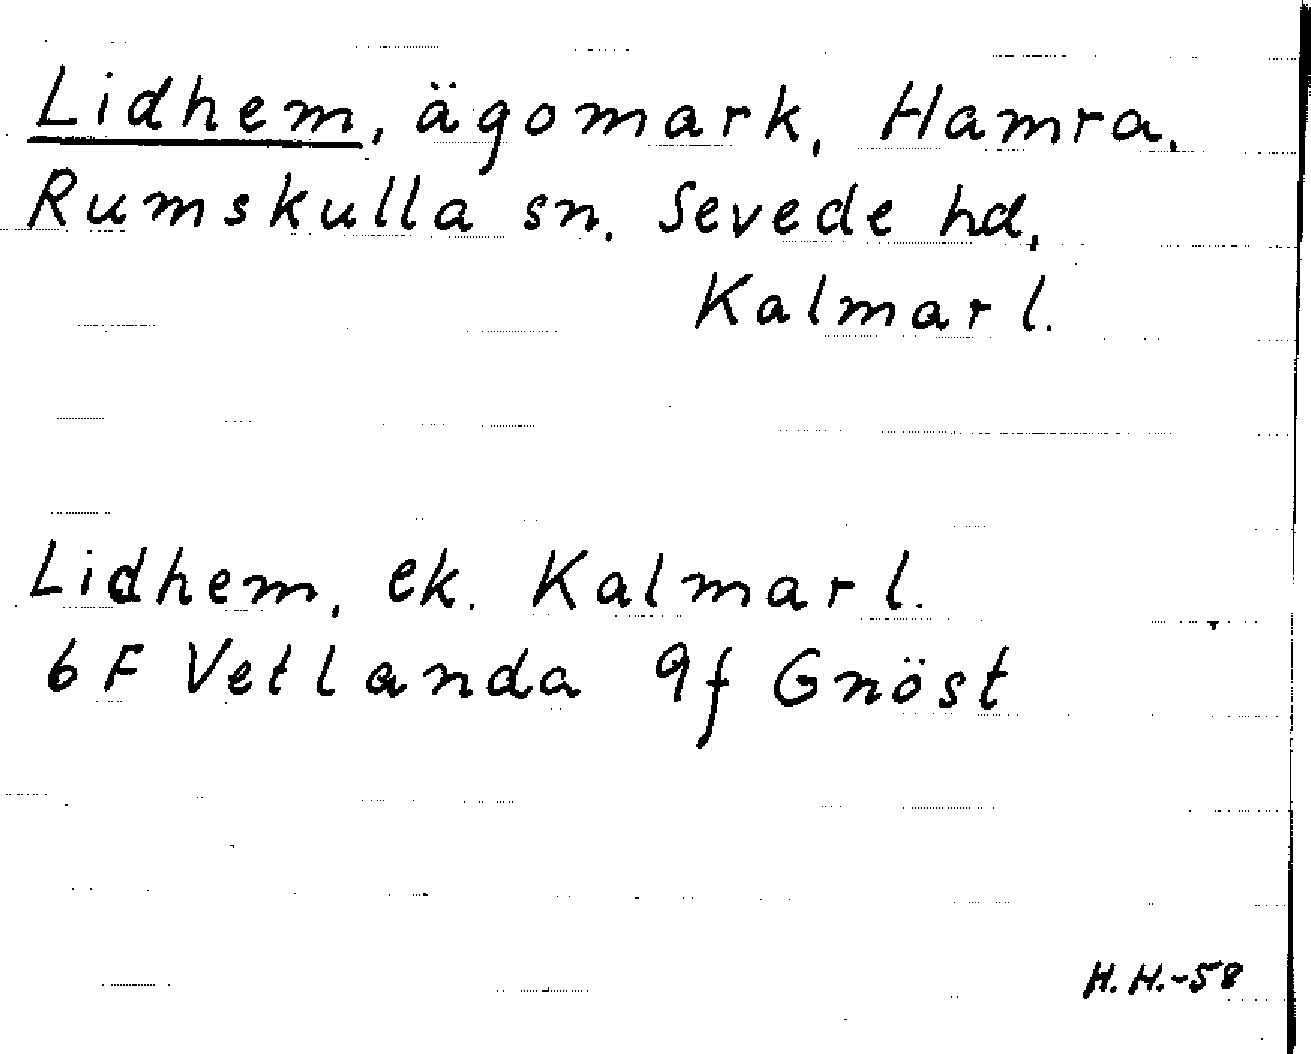 Lidhem, ägomark, Hamra,
Rumskulla sn. Sevede hd,
Kalmar l.
Lidhem, ek. Kalmar l.
6F Vetlanda 9f Gnöst
H.H.-58